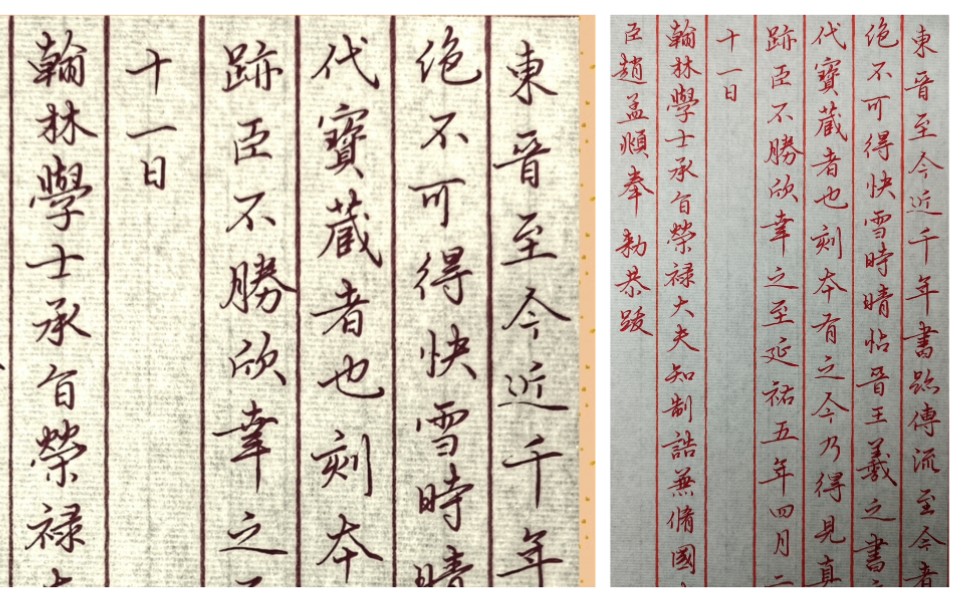 東晉至今近千年
絕不可得快雪時晴
代寶蔵者也刻本
跡臣不勝欣幸之
十一日
翰林學士承旨榮禄
東晉至今近千年書跡傳流至今者
絕不可得快雪時晴帖晉王羲之書
代寶蔵者也刻本有之今乃得見真
跡臣不勝欣幸之至延祐五年四月二
十一日
翰林學士承旨榮禄大夫知制誥兼脩國
臣趙孟頫奉 勑恭跋